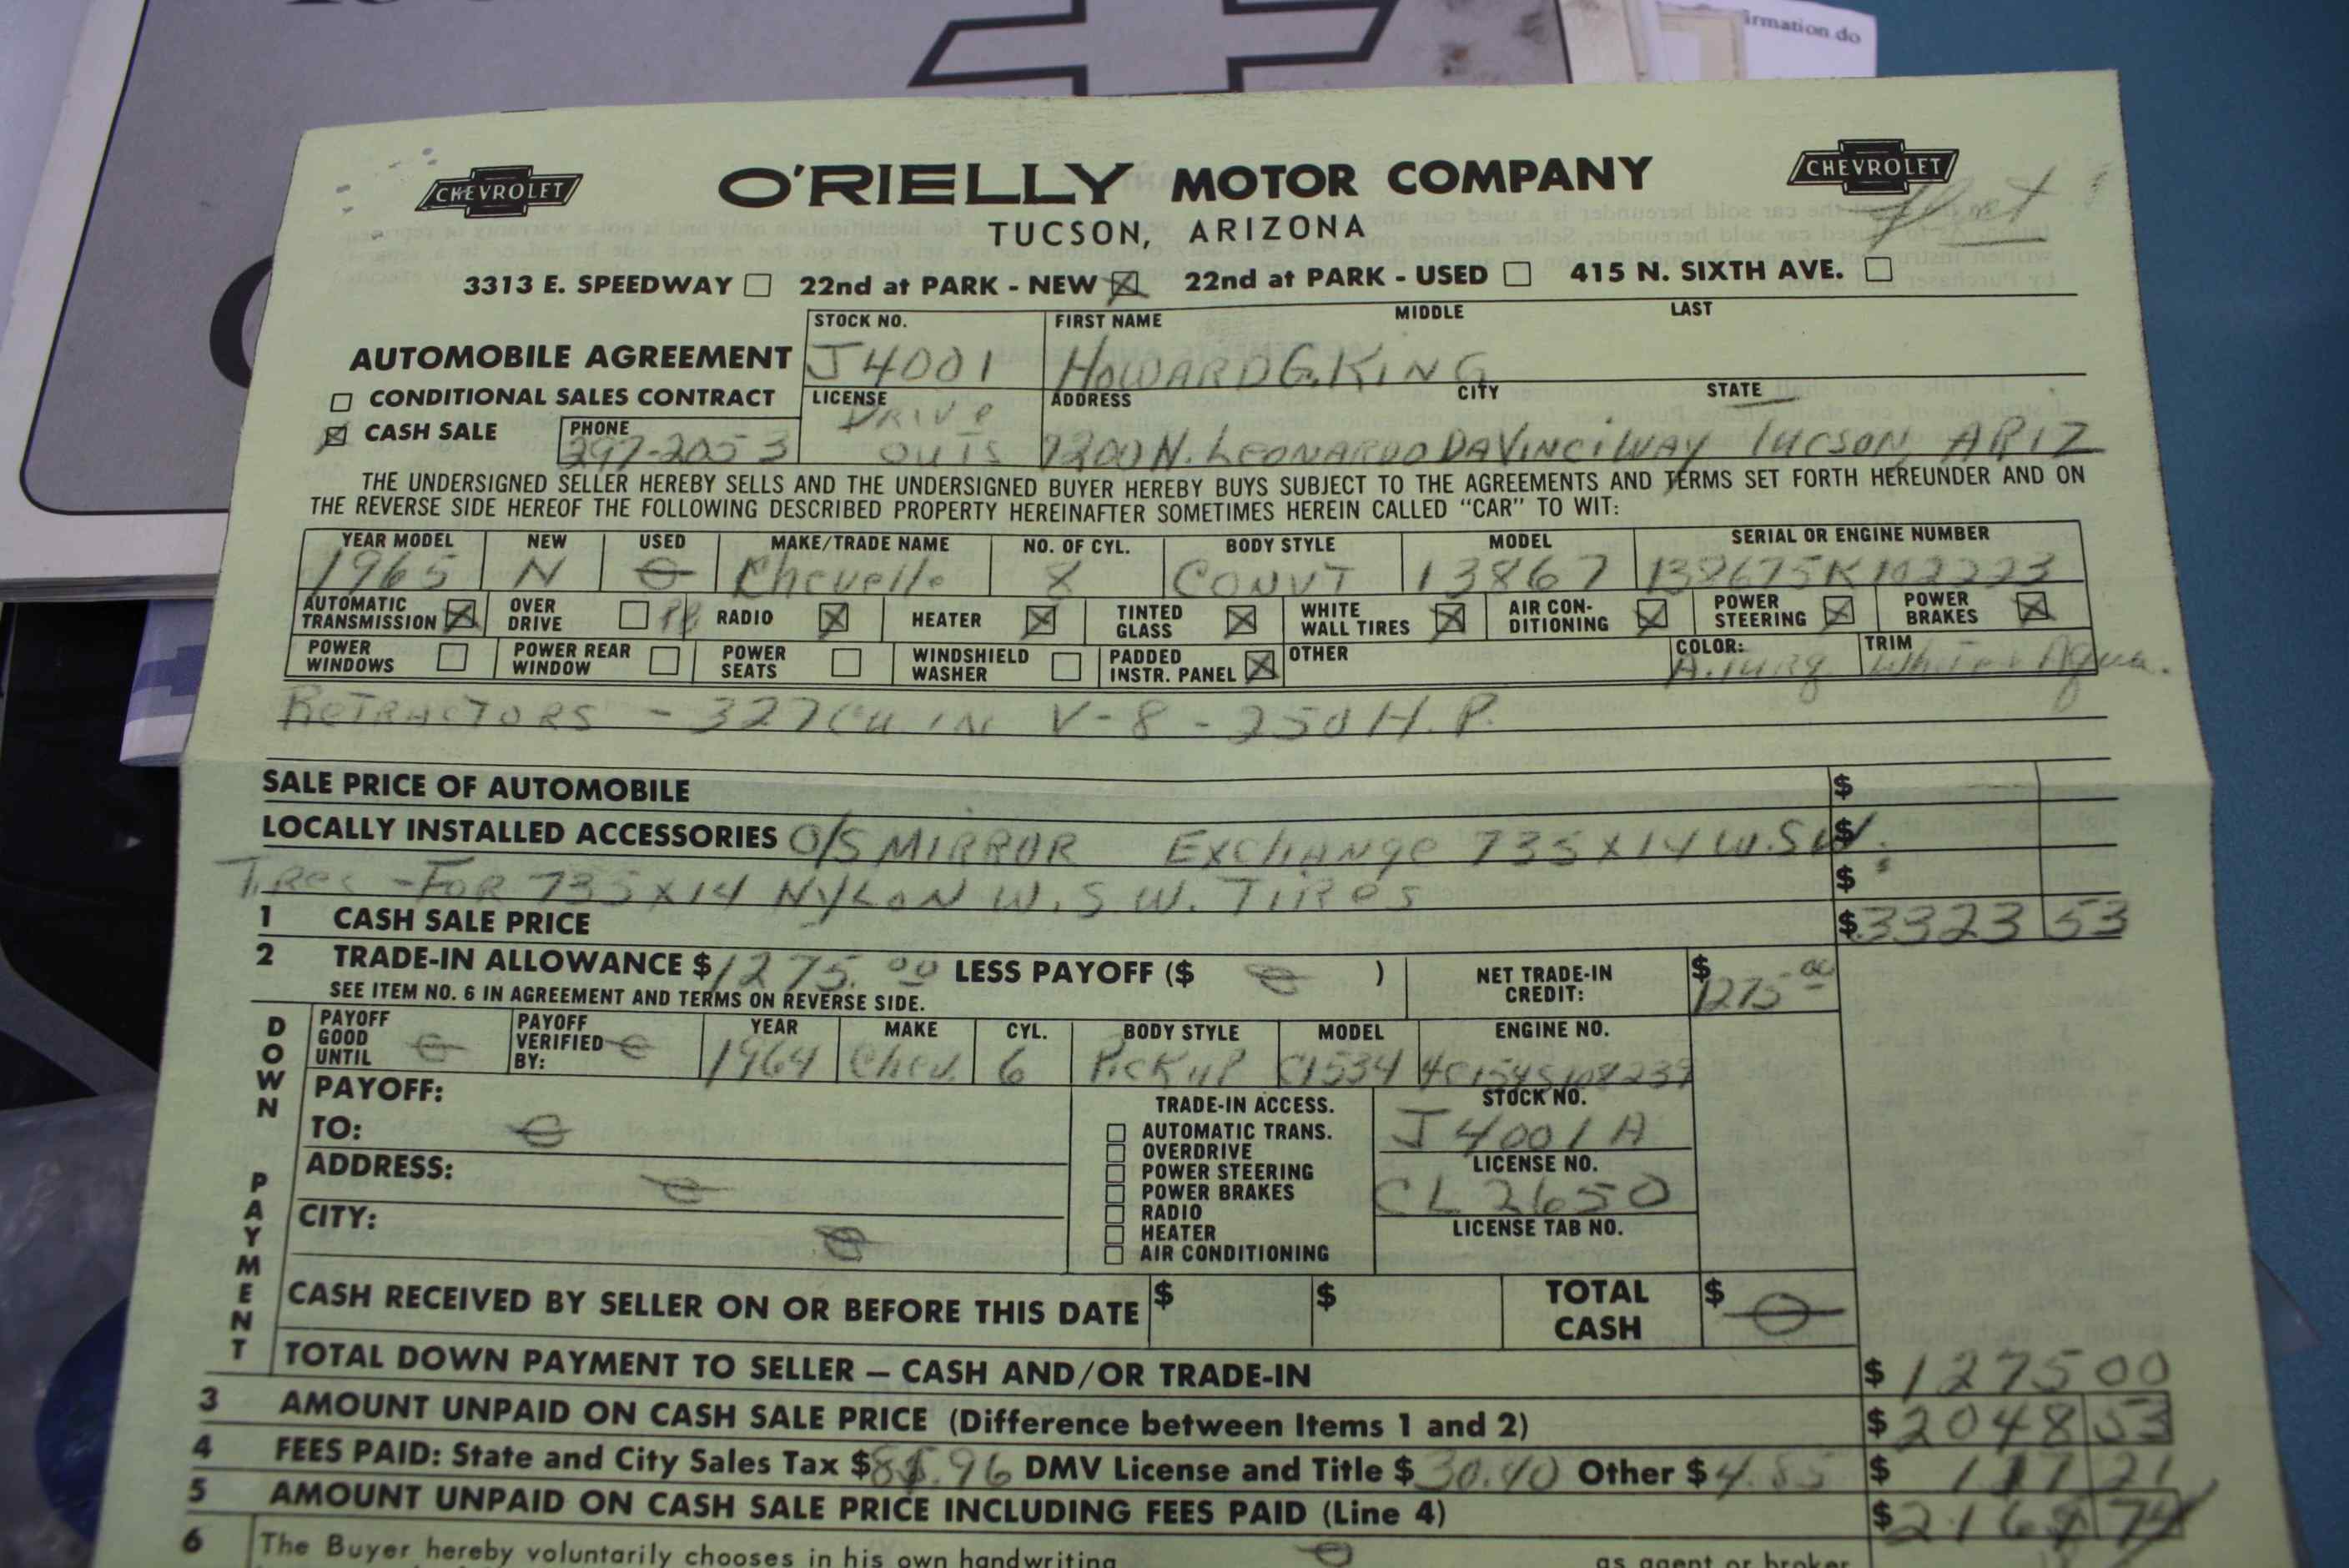 irmation do
CHEVROLET O'RIELLY MOTOR COMPANY CHEVROLET
TUCSON, ARIZONA
3313 E. SPEEDWAY 22nd at PARK - NEW 22nd at PARK - USED 415 N. SIXTH AVE.
STOCK NO. FIRST NAME MIDDLE LAST
AUTOMOBILE AGREEMENT J4001 HOWARD G. KING
CONDITIONAL SALES CONTRACT LICENSE ADDRESS CITY STATE
CASH SALE PHONE DRIVE
297-2053 OUTS 7200 N. LEONARDO DAVINCI WAY TUCSON, ARIZ
THE UNDERSIGNED SELLER HEREBY SELLS AND THE UNDERSIGNED BUYER HEREBY BUYS SUBJECT TO THE AGREEMENTS AND TERMS SET FORTH HEREUNDER AND ON
THE REVERSE SIDE HEREOF THE FOLLOWING DESCRIBED PROPERTY HEREINAFTER SOMETIMES HEREIN CALLED "CAR" TO WIT:
YEAR MODEL NEW USED MAKE/TRADE NAME NO. OF CYL. BODY STYLE MODEL SERIAL OR ENGINE NUMBER
1965 N Chevelle 8 CONVT 13867 138675K102223
AUTOMATIC TRANSMISSION OVER DRIVE RADIO HEATER TINTED GLASS WHITE WALL TIRES AIR CON-DITIONING POWER STEERING POWER BRAKES
POWER WINDOWS POWER REAR WINDOW POWER SEATS WINDSHIELD WASHER PADDED INSTR. PANEL OTHER COLOR: A. Turq TRIM White Aqua.
RETRACTORS - 327 CU. IN V-8 - 250 H.P.
SALE PRICE OF AUTOMOBILE $
LOCALLY INSTALLED ACCESSORIES O/S MIRROR Exchange 735 x 14 W.S.W. $
Tires - FOR 735 x 14 NYLON W.S.W. TIRES $
1 CASH SALE PRICE $ 3323 53
2 TRADE-IN ALLOWANCE $ 1275.00 LESS PAYOFF ($ ) NET TRADE-IN CREDIT: $ 1275 00
SEE ITEM NO. 6 IN AGREEMENT AND TERMS ON REVERSE SIDE.
DOWN PAYMENT
PAYOFF GOOD UNTIL PAYOFF VERIFIED BY: YEAR MAKE CYL. BODY STYLE MODEL ENGINE NO.
1964 Chev. 6 Pickup C1534 4C154S108237
PAYOFF: TRADE-IN ACCESS. STOCK NO.
TO: AUTOMATIC TRANS. J4001A
OVERDRIVE
ADDRESS: POWER STEERING LICENSE NO.
POWER BRAKES CL 2650
CITY: RADIO
HEATER LICENSE TAB NO.
AIR CONDITIONING
CASH RECEIVED BY SELLER ON OR BEFORE THIS DATE $ $ TOTAL CASH $
TOTAL DOWN PAYMENT TO SELLER — CASH AND/OR TRADE-IN $ 1275 00
3 AMOUNT UNPAID ON CASH SALE PRICE (Difference between Items 1 and 2) $ 2048 53
4 FEES PAID: State and City Sales Tax $ DMV License and Title $ 30.40 Other $ 4.85 $ 117 21
5 AMOUNT UNPAID ON CASH SALE PRICE INCLUDING FEES PAID (Line 4) $
6 The Buyer hereby voluntarily chooses in his own handwriting as agent or broker